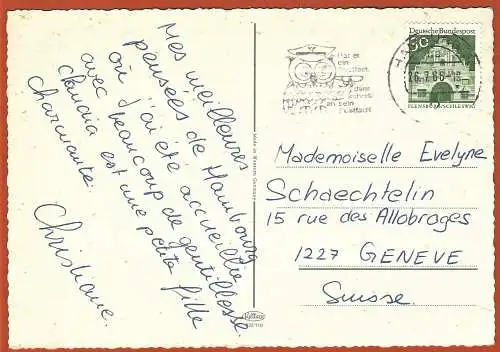 Mes meilleures
pensées de Hambourg
où j'ai été accueillie
avec beaucoup de gentillesse.
Claudia est une petite fille
charmante.
Christiane.
Made in Western Germany
Krüger
Hat er
ein
an sein
Postfach
Deutsche Bundespost
30
FLENSBURG/SCHLESWIG
26.7.66-18
Mademoiselle Evelyne
Schaechtelin
15 rue des Allobroges
1227 GENEVE
Suisse.